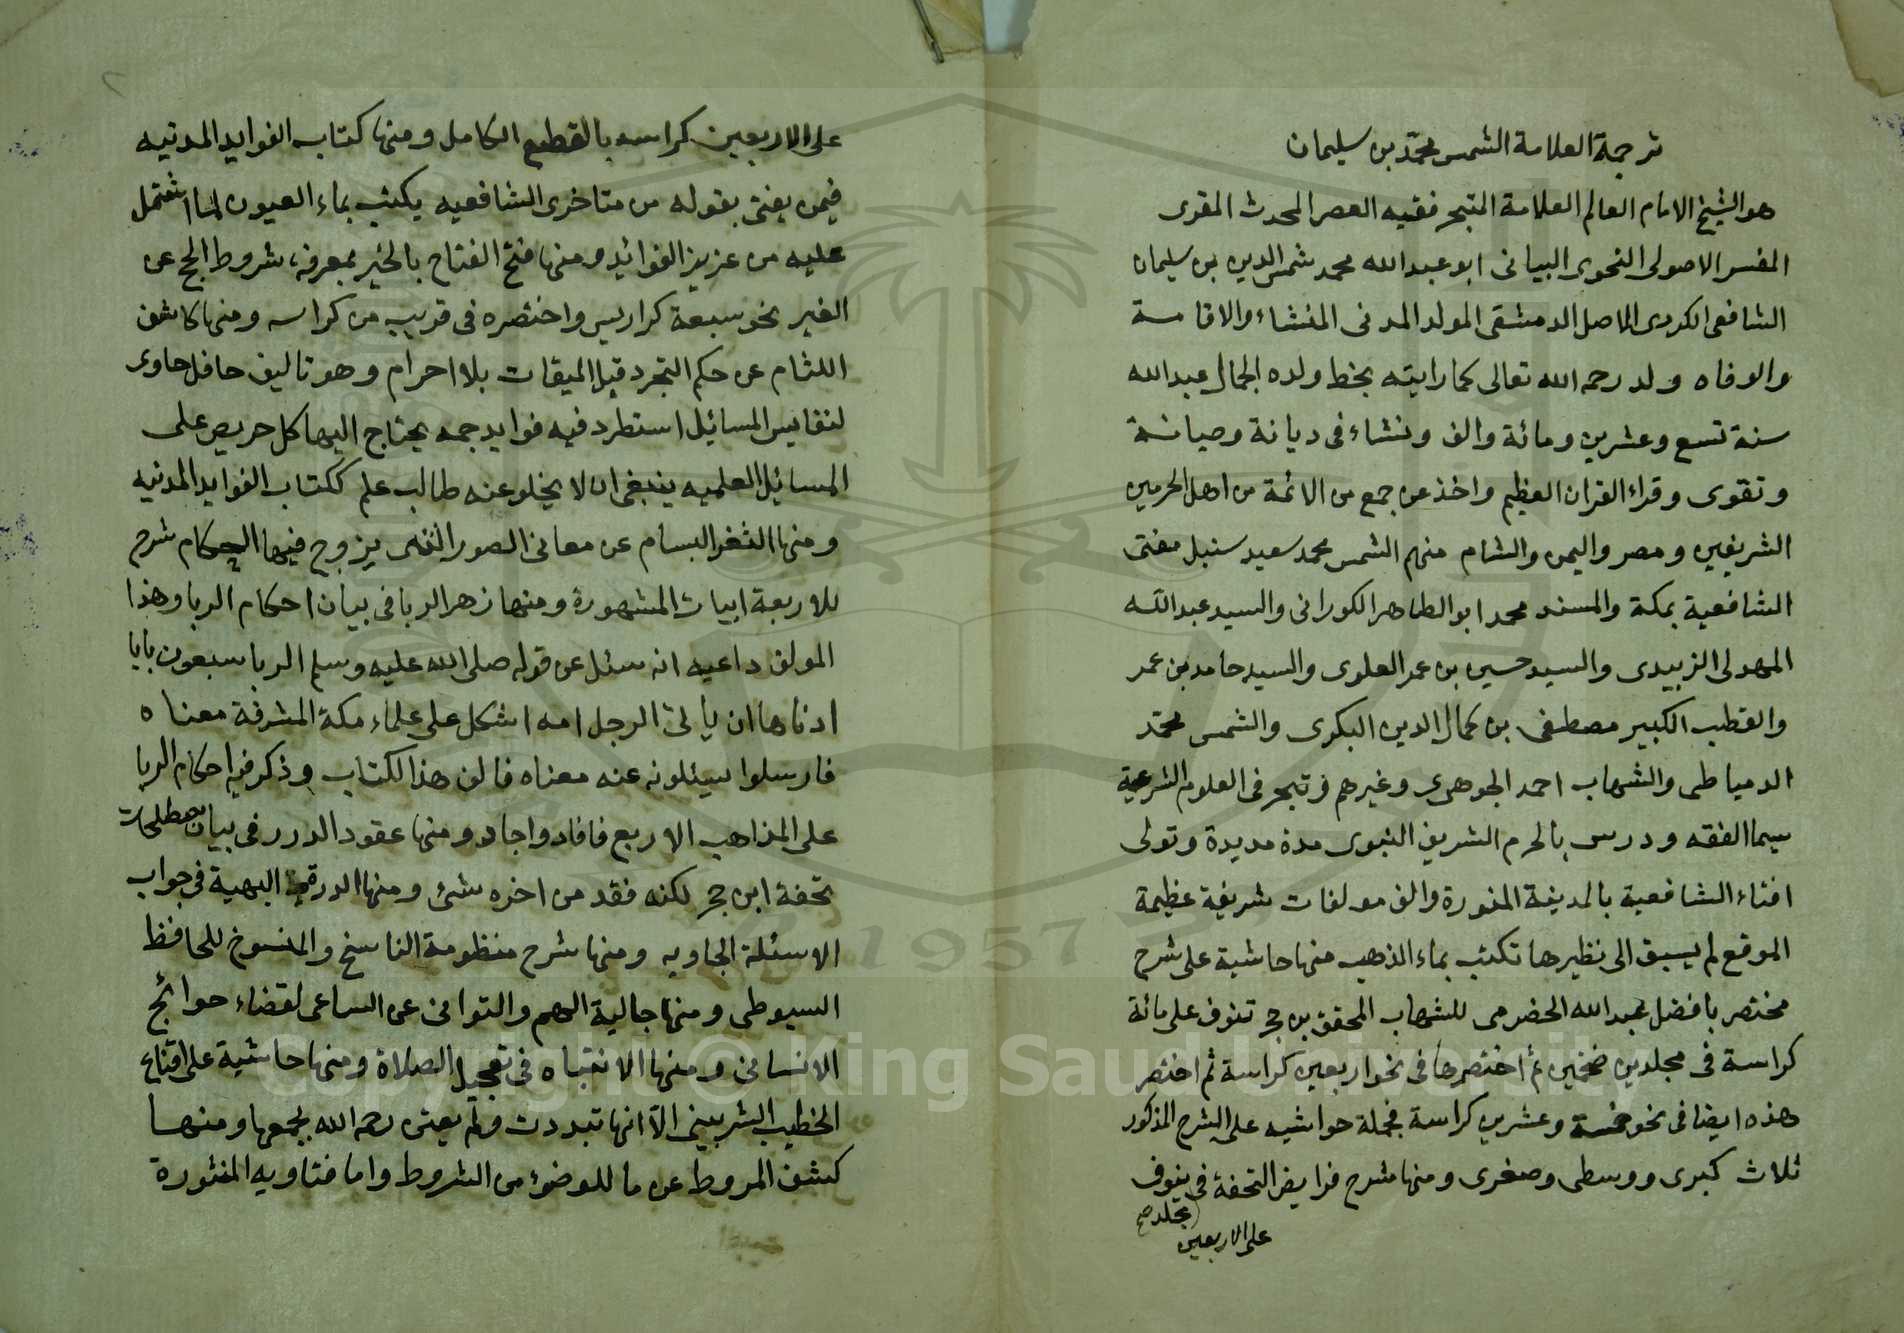 ترجمة العلامة الشمس محمد بن سليمان
هو الشيخ الامام العالم العلامة المتبحر فقيه العصر المحدث المقرى
المفسر الاصولى النحوى البيانى ابو عبد الله محمد شمس الدين بن سليمان
الشافعى الكردى الاصل الدمشقى المولد المدنى المنشاء والاقامة
والوفاه ولد رحمه الله تعالى كما رايته بخط ولده الجمال عبد الله
سنة تسع وعشرين ومائة والف ونشاء فى ديانة وصيانة
وتقوى وقراء القران العظيم واخذ عن جمع من الائمة من اهل الحرمين
الشريفين ومصر واليمن والشام منهم الشمس محمد سعيد سنبل مفتى
الشافعية بمكة والمسند محمد ابو الطاهر الكورانى والسيد عبد الله
المهدلى الزبيدى والسيد حسين بن عمر العلوى والسيد حامد بن عمر
والقطب الكبير مصطفى بن كمال الدين البكرى والشمس محمد
الدمياطى والشهاب احمد الجوهرى وغيرهم وتبحر فى العلوم الشرعية
سيما الفقه ودرس بالحرم الشريف النبوى مدة مديدة وتولى
افتاء الشافعية بالمدينة المنورة والف مولفات شريفة عظيمة
الموقع لم يسبق الى نظيرها تكتب بماء الذهب منها حاشية على شرح
مختصر بافضل عبد الله الحضرمى للشهاب المحقق بن حجر تنوف على مائة
كراسة فى مجلدين ضخمين ثم اختصرها فى نحو اربعين كراسة ثم اختصر
هذه ايضا فى نحو خمسة وعشرين كراسة فجملة حواشيه على الشرح المذكور
ثلاث كبرى ووسطى وصغرى ومنها شرح فرايض التحفة فى ينوف
مجلد صح
على الاربعين
على الاربعين كراسه بالقطع الكامل ومنها كتاب الفوايد المدنيه
فيمن يفتى بقوله من متاخرى الشافعيه يكتب بماء العيون لما اشتمل
عليه من عزيز الفوائد ومنها فتح الفتاح بالخير بمعرفة شروط الحج عن
الغير نحو سبعة كراريس واختصره فى قريب من كراسه ومنها كاشف
اللثام عن حكم التجرد قبل الميقات بلا احرام وهو تاليف حافل حاوى
لنفايس المسائل استطرد فيه فوايد جمه يحتاج اليها كل حريص على
المسائل العلميه ينبغى ان لا يخلو عنه طالب علم ككتاب الفوايد المدنيه
ومنها الثغر البسام عن معانى الصور التى يزوج فيها الحكام شرح
للاربعة ابيات المشهورة ومنها زهر الربا فى بيان احكام الربا وهذا
المولف داعيه انه سئل عن قوله صلى الله عليه وسلم الربا سبعون بابا
ادناها ان ياتى الرجل امه اشكل على علماء مكة المشرفة معناه
فارسلوا سيئلونه عنه معناه فالف هذا الكتاب وذكر فيه احكام الربا
على المذاهب الاربع فافاد واجاد ومنها عقود الدرر فى بيان مصطلحات
تحفة ابن حجر لكنه فقد من اخره شئ ومنها الدرة البهية فى جواب
الاسئلة الجاويه ومنها شرح منظومة الناسخ والمنسوخ للحافظ
السيوطى ومنها جالية الهم والتوانى عن الساعى لقضاء حوائج
الانسانى ومنها الانتباه فى تعجيل الصلاة ومنها حاشية على اقناع
الخطيب الشربينى الا انها تبددت ولم يعتى رحمه الله بجمعها ومنها
كشف المروط عن ما للوضوء من الشروط واما فتاويه المنثورة
1957
Copyright © King Saud University